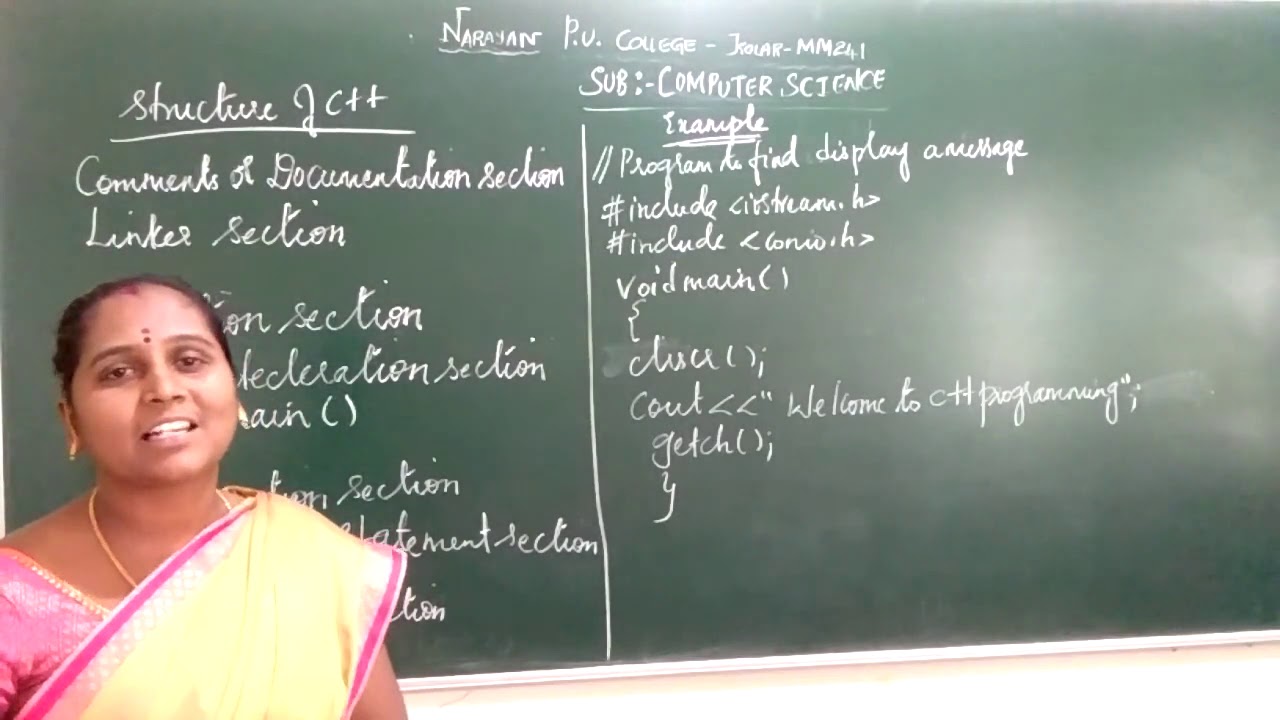 NARAYAN P.U. COLLEGE - KOLAR - MM241
SUB:- COMPUTER SCIENCE
Structure of C++
Comments or Documentation section
Linker section
tion section
decleration section
ain ( )
tion section
statement section
ction
Example
// Program to find display a message
#include <iostream.h>
#include <conio.h>
void main ( )
{
clrscr ( );
cout << " Welcome to C++ programming";
getch ( );
}